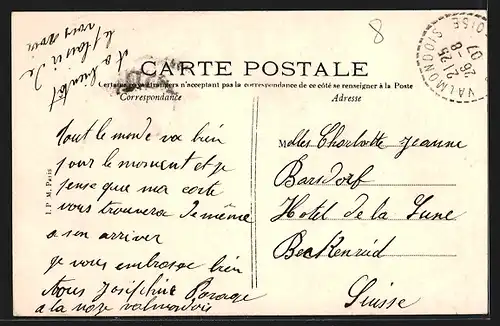 8
VALMONDOIS S. -OISE
21 25
26 -8
07
CARTE POSTALE
Certains pays étrangers n'acceptant pas la correspondance de ce côté se renseigner à la Poste
Correspondance
Adresse
a bientot
le plaisir de
vous voir
tout le monde va bien
pour le moment et je
pense que ma carte
vous trouvera de même
a son arriver
je vous embrasse bien
Josephine
a la noze valmondois
I. P. M. Paris
Melles Charlotte Jeanne
Barsdorf
Hotel de la Lune
Beckenried
Suisse